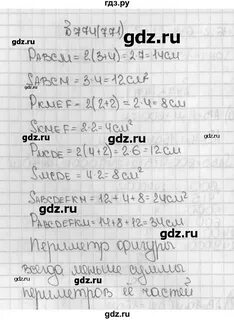 гдз.ру
№774(771)
PABCM = 2(3+4) = 2·7 = 14см
SABCM = 3·4 = 12см²
PKMEF = 2(2+2) = 2·4 = 8см
SKMEF = 2·2 = 4см²
PMCDE = 2(4+2) = 2·6 = 12см
SMCDE = 4·2 = 8см²
SABCDEFKM = 12+4+8 = 24см²
PABCDEFKM = 14+8+12 = 34см
Периметр фигуры
всегда меньше суммы
периметров её частей